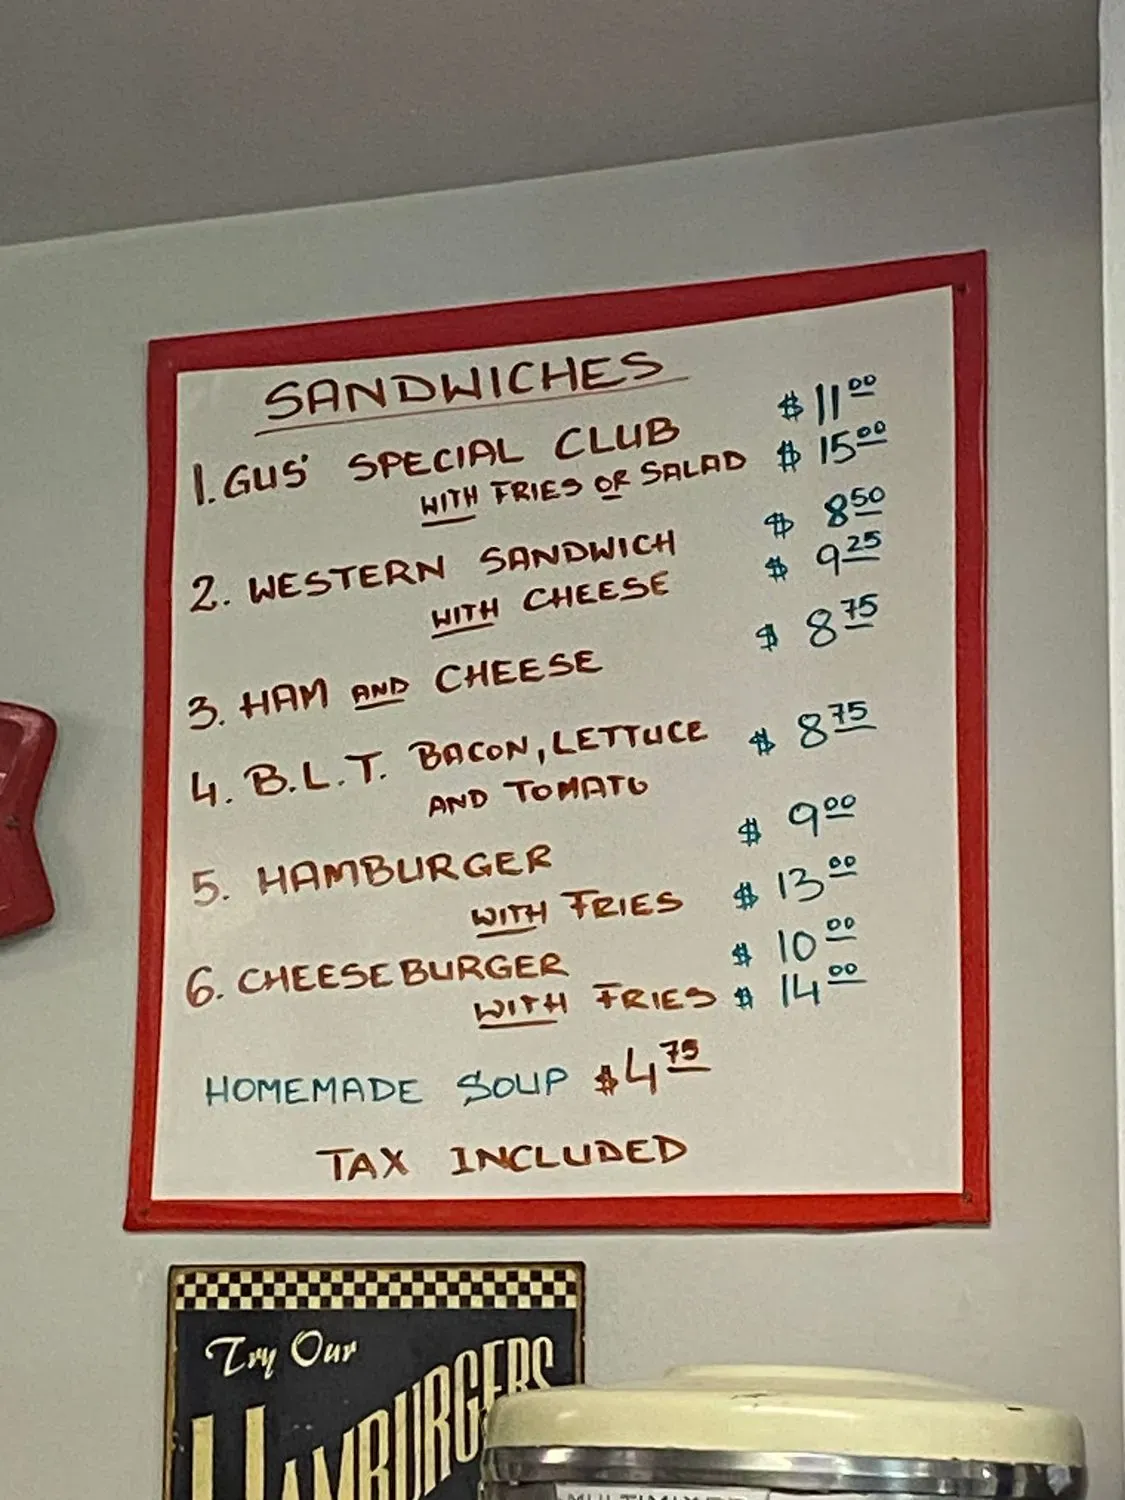 SANDWICHES
1. GUS' SPECIAL CLUB $ 11 00
WITH FRIES OR SALAD $ 15 00
2. WESTERN SANDWICH $ 8 50
WITH CHEESE $ 9 25
3. HAM AND CHEESE $ 8 75
4. B.L.T. BACON, LETTUCE $ 8 75
AND TOMATO
5. HAMBURGER $ 9 00
WITH FRIES $ 13 00
6. CHEESEBURGER $ 10 00
WITH FRIES $ 14 00
HOMEMADE SOUP $4 75
TAX INCLUDED
Try Our
HAMBURGERS
MULTIMIXER